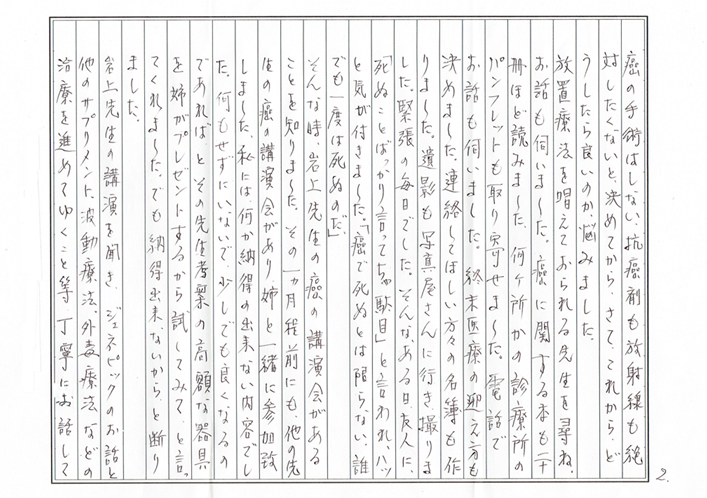 癌の手術はしない、抗癌剤も放射線も絶
対したくないと決めてから、さて、これから、ど
うしたら良いのか、悩みました。
放置療法を唱えておられる先生を尋ね、
お話も伺いました。癌に関する本も二十
冊ほど読みました。何ヶ所かの診療所の
パンフレットも取り寄せました。電話で
お話も伺いました。終末医療の迎え方も
決めました。連絡してほしい方々の名簿も作
りました。遺影も写真屋さんに行き撮りま
した。緊張の毎日でした。そんなある日、友人に、
「死ぬことばっかり言ってちゃ駄目」と言われ、ハッ
と気が付きました。「癌で死ぬとは限らない、誰
でも一度は死ぬのだ」
そんな時、岩上先生の癌の講演会がある
ことを知りました。その一ヵ月程前にも、他の先
生の癌の講演会があり姉と一緒に参加致
しました。私には何か納得の出来ない内容でし
た。何もせずにいないで、少しでも良くなるの
であればと、その先生考案の高額な器具
を姉がプレゼントするから試してみて、と言っ
てくれました。でも納得出来ないからと断り
ました。
岩上先生の講演を聞き、ジェネピックのお話と
他のサプリメント、波動療法、外毒療法などの
治療を進めてゆくこと等、丁寧にお話して
2.